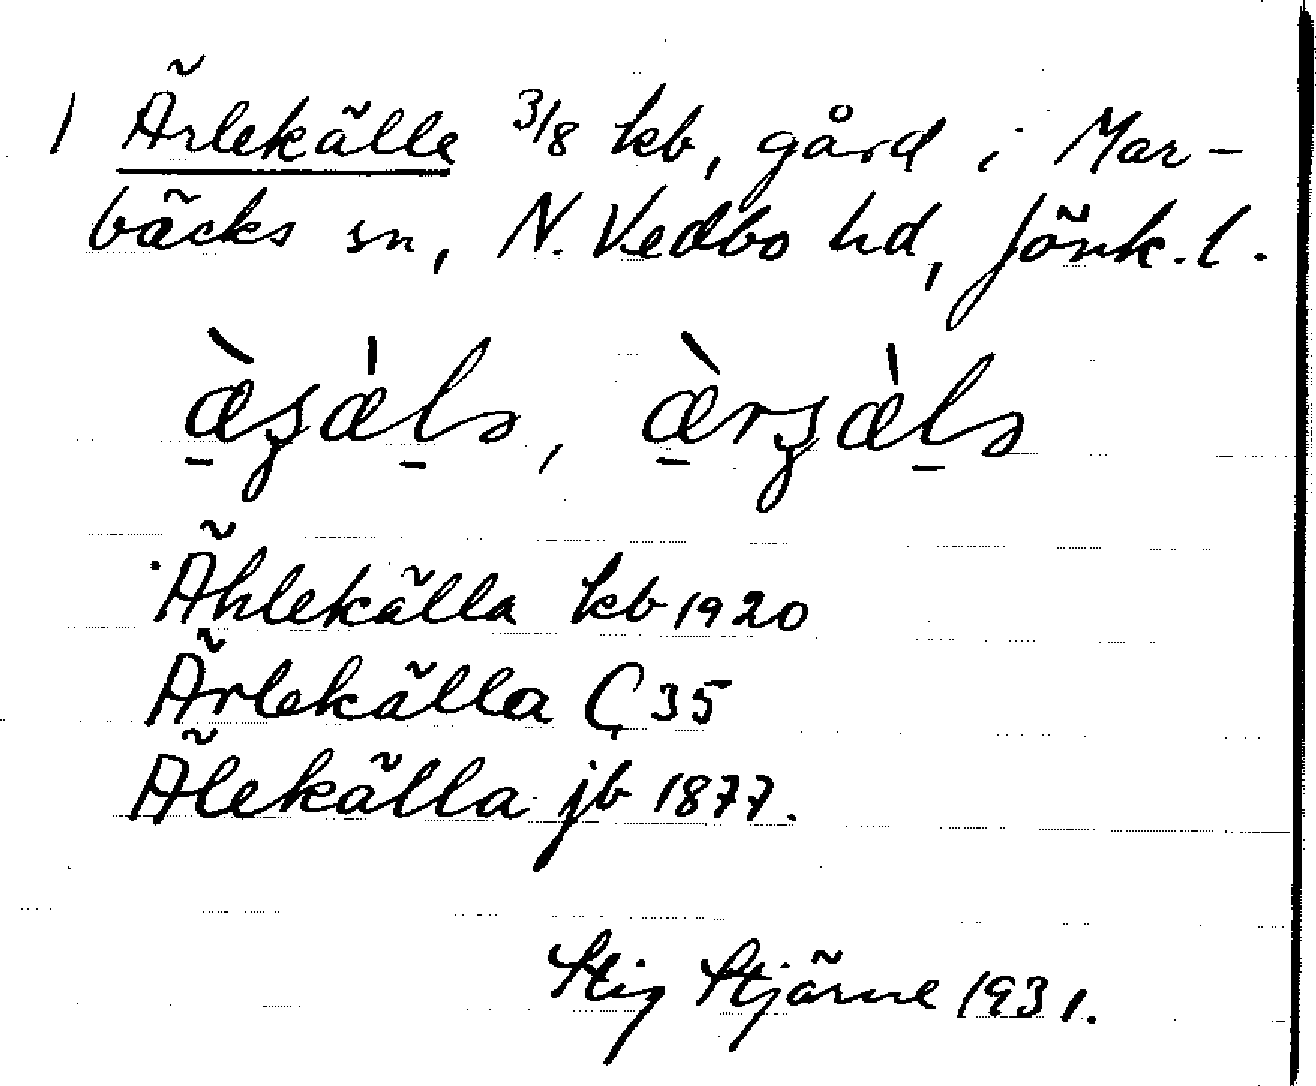 1 Ärlekälle 3/8 kb, gård i Mar-
bäcks sn, N. Vedbo hd, Jönk. l.
Ählekälla kb 1920
Ärlekälla Ç 35
Älekälla jb 1877.
Stig Stjärne 1931.